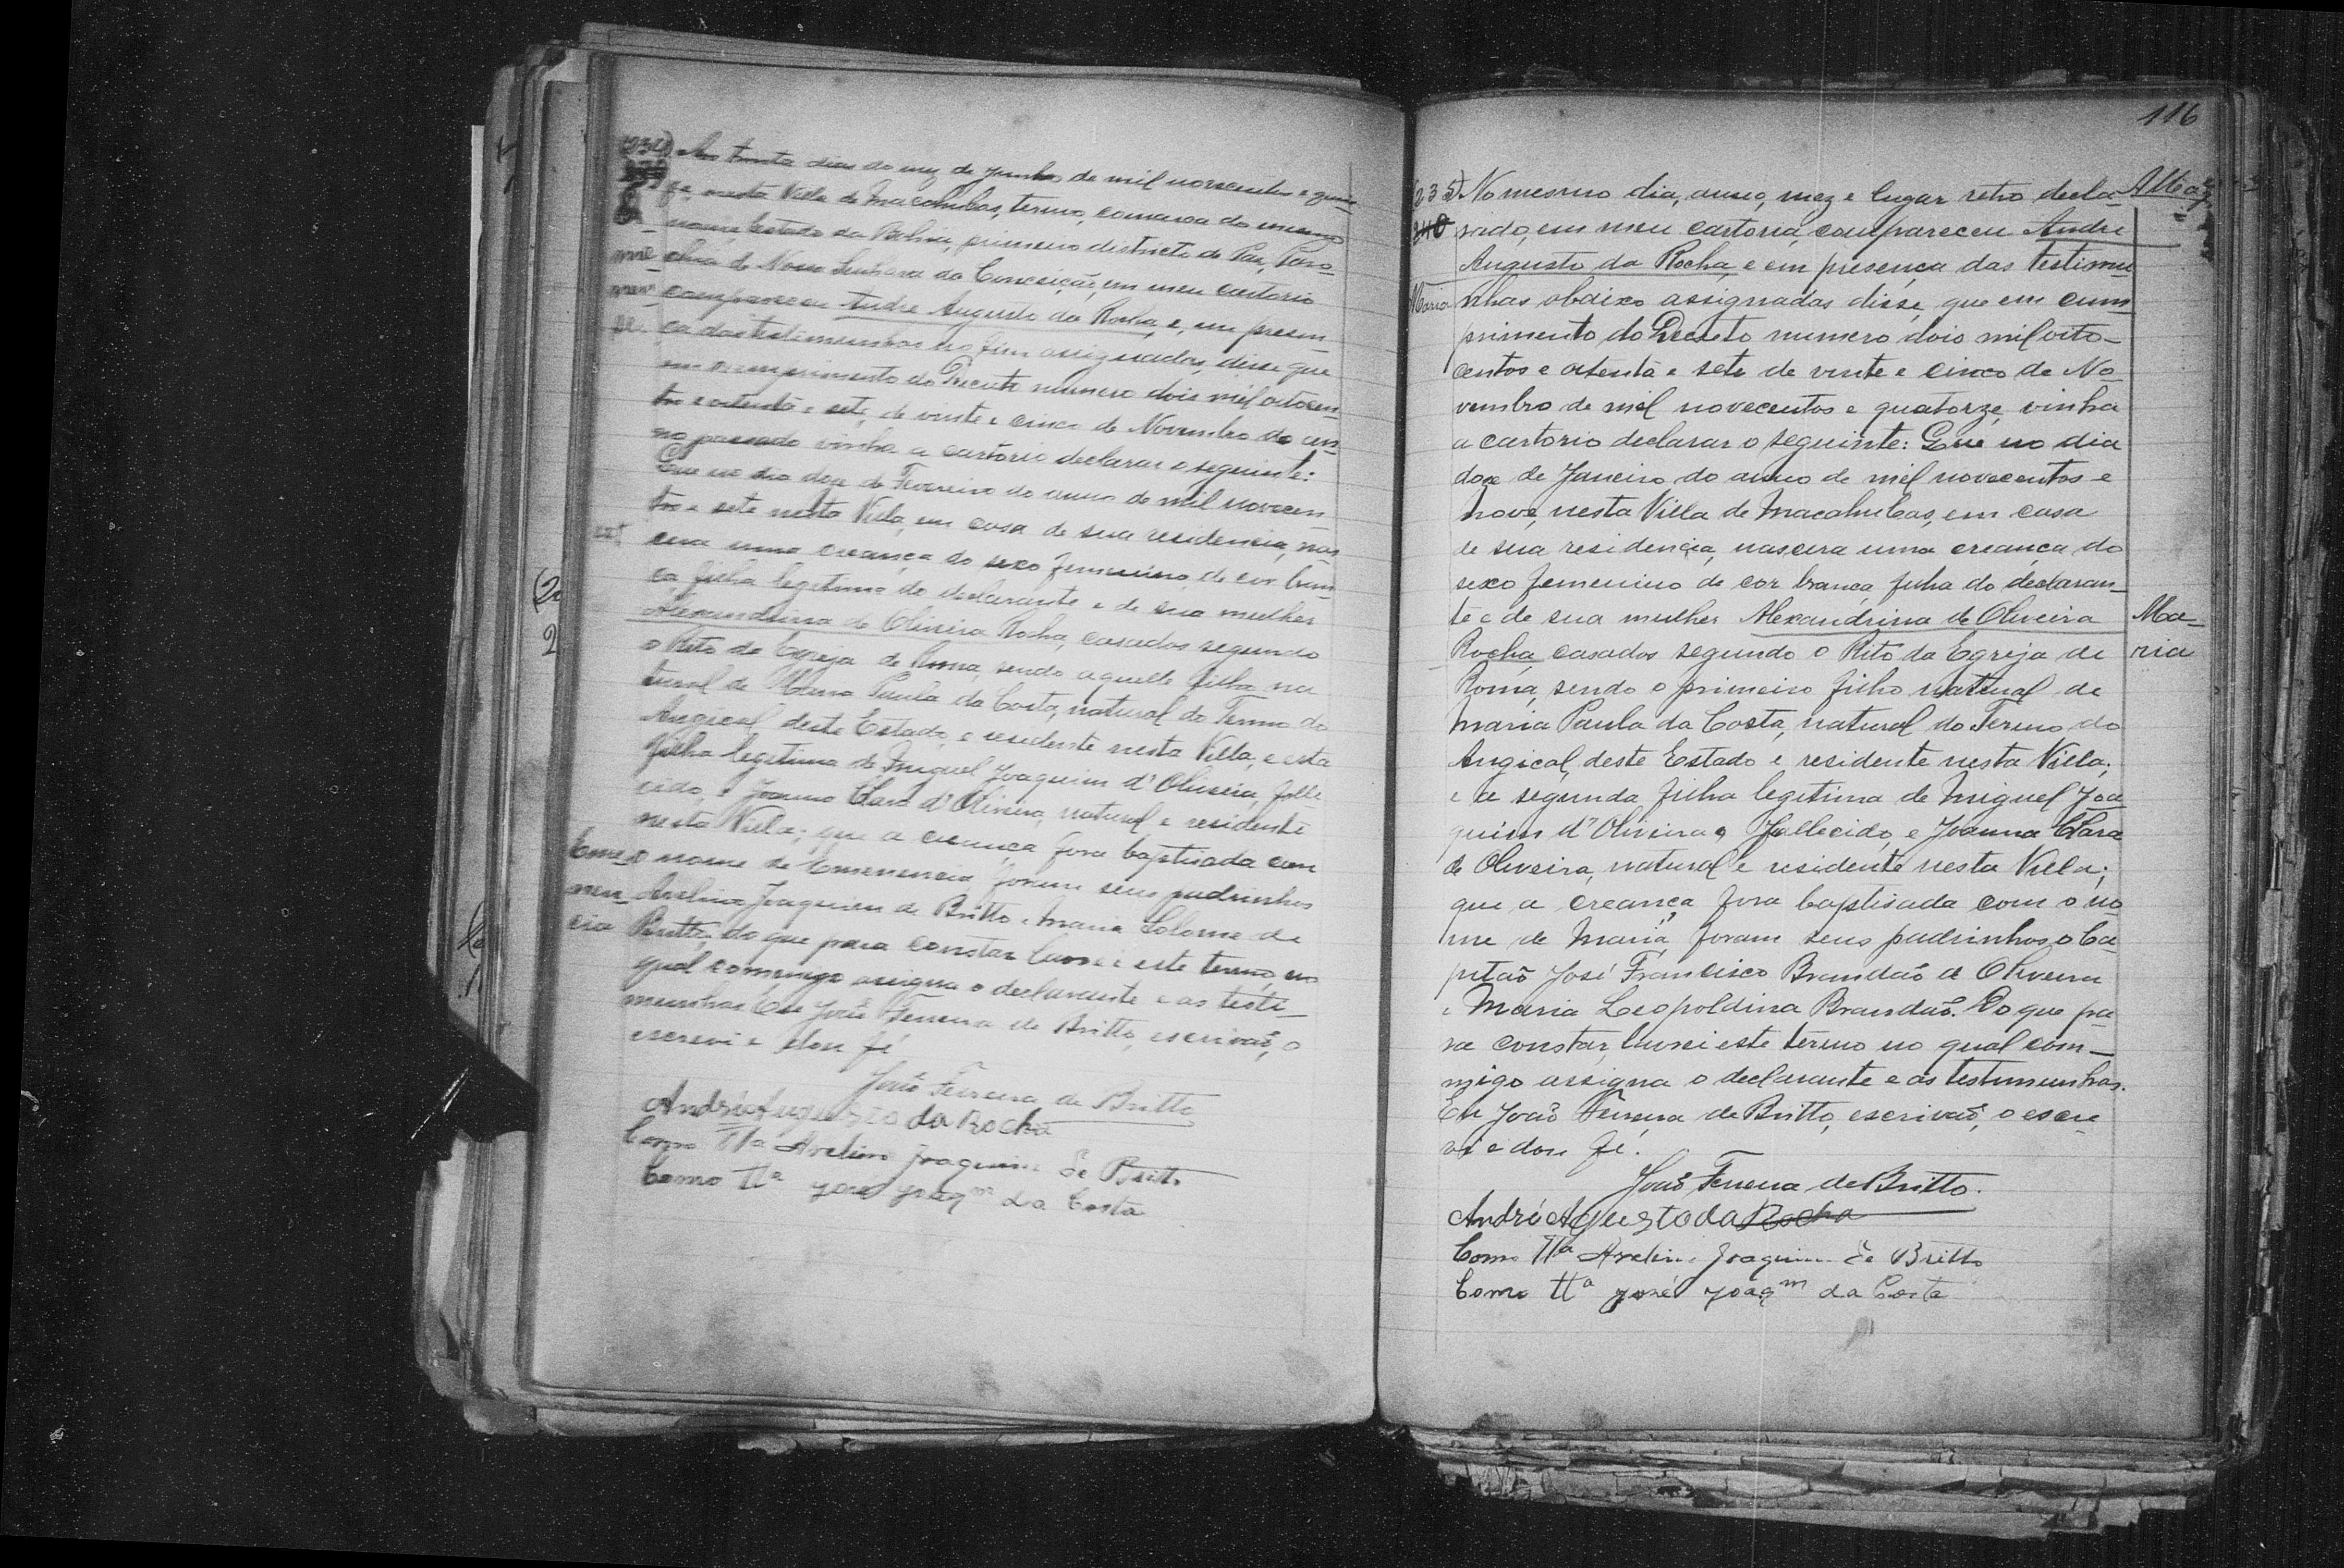 Aos trinta dias do mez de Junho de mil novecentos e quin-
ze, nesta Villa de Macahubas, termo, comarca do mesmo
nome Estado da Bahia, primeiro districto de Paz, Paro-
chia de Nossa Senhora da Conceição, em meu cartorio
compareceu Andre Augusto da Rocha, e, em presen-
ça das testimunhas no fim assignadas, disse que
em cumprimento do Decreto numero dois mil oitocen-
tos e oitenta e sete, de vinte e cinco de Novembro do an-
no passado vinha a cartorio declarar o seguinte:
Que no dia doze de Fevereiro do anno de mil novecen-
tos e sete nesta Villa, em casa de sua residencia, nas
cera uma creança do sexo femenino de cor bran-
ca, filha legitima do declarante e de sua mulher
Alexandrina de Oliveira Rocha, casados segundo
o Rito da Egreja de Roma, sendo aquelle filho na
tural de Maria Paula da Costa, natural do Termo do
Angical, deste Estado, e residente nesta Villa, e esta
filha legitima de Miguel Joaquim d'Oliveira, falle
cido, e Joanna Clara d'Oliveira, natural e residente
nesta Villa; que a creança fora baptisada com
Eme- o nome de Emerencia, foram seus padrinhos
ren- Avelino Joaquim de Britto e Maria Salome de
cia Britto, do que para constar lavrei este termo, no
qual commigo assigna o declarante e as testi-
munhas. Eu João Ferreira de Britto, escrivaõ, o
escrevi e dou fé
João Ferreira de Britto
André Augusto da Rocha
Como Tta Avelino Joaquim de Britto
Como Tta José Joaqm da Costa
116
235) No mesmo dia, anno, mez e lugar retro decla-
240 rado, em meu cartorio, compareceu Andre
Augusto da Rocha, e em presença das testimu
Maria nhas abaixo assignadas disse, que em cum-
primento do Decreto numero dois mil oito-
centos e oitenta e sete de vinte e cinco de No-
vembro de mil novecentos e quatorze, vinha
a cartorio declarar o seguinte: Que no dia
doze de Janeiro do anno de mil novecentos e
nove, nesta Villa de Macahubas, em casa
de sua residencia, nascera uma creança do
sexo femenino de cor branca, filha do declaran-
te e de sua mulher Alexandrina de Oliveira Ma-
Rocha, casados segundo o Rito da Egreja de ria
Roma, sendo o primeiro filho natural de
Maria Paula da Costa, natural do Termo do
Angical, deste Estado e residente nesta Villa;
e a segunda filha legitima de Miguel Joa
quim d'Oliveira, Fallecido, e Joanna Clara
de Oliveira, natural e residente nesta Villa;
que a creança fora baptisada com o no
me de Maria, foram seus padrinhos o Ca
pitaõ José Francisco Brandaõ de Oliveira
e Maria Leopoldina Brandaõ. Do que pa
ra constar, lavrei este termo no qual com-
migo assigna o declarante e as testimunhas.
Eu João Ferreira de Britto, escrivaõ, o escre
vi e dou fé.
João Ferreira de Britto.
André Agusto da Rocha
Como Tta Avelino Joaquim de Britto
Como Tta José Joaqm da Costa